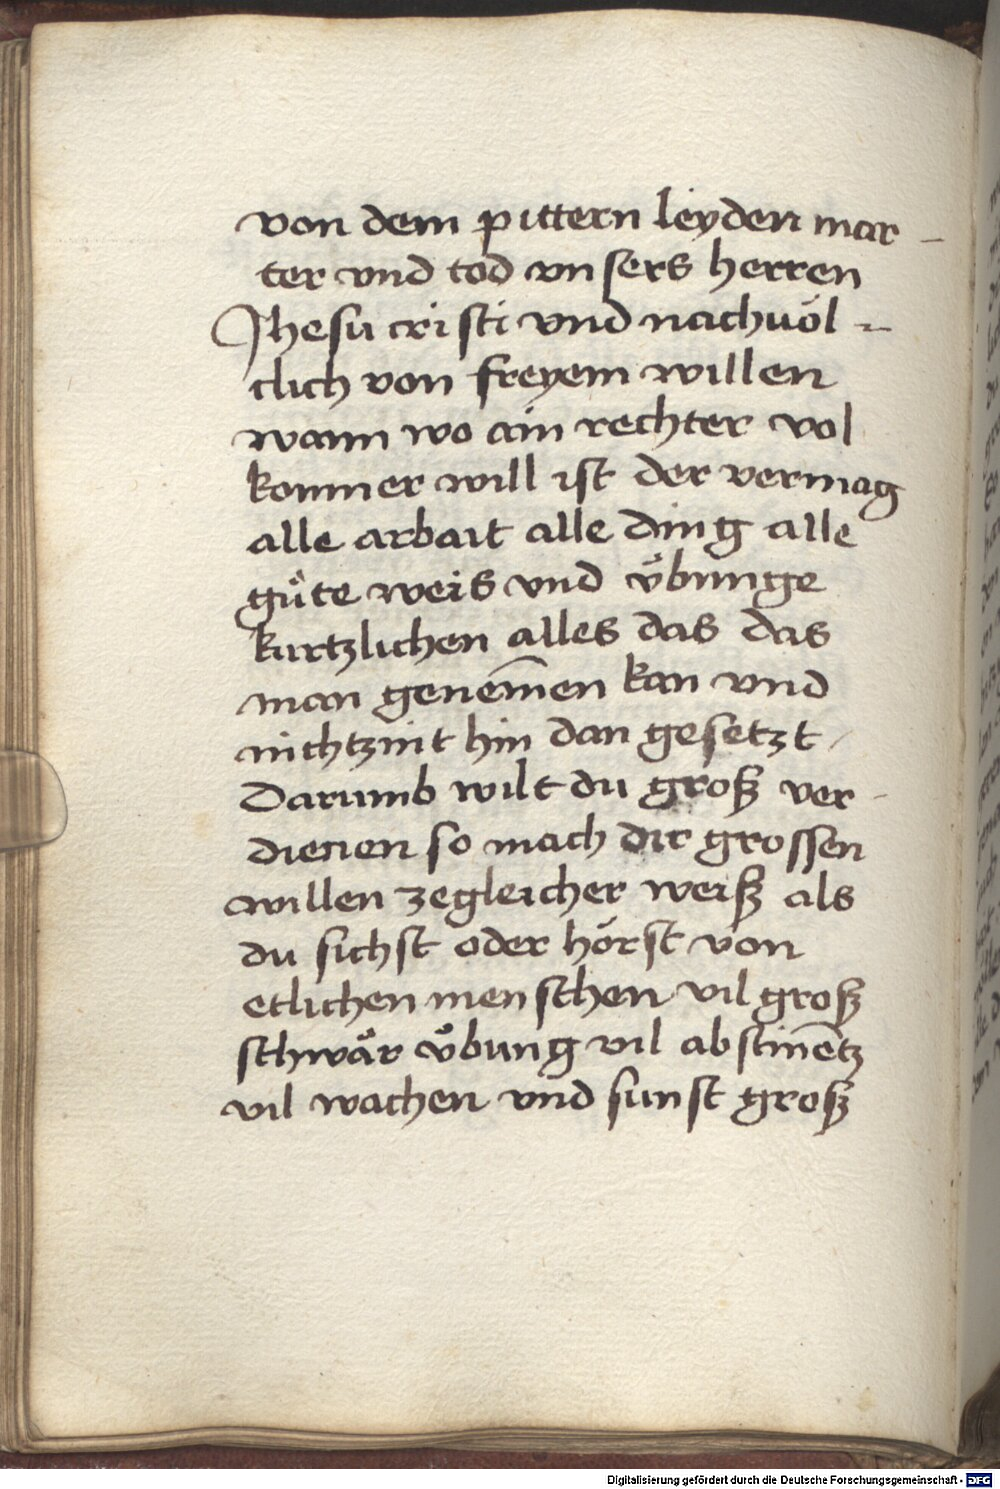 von dem pittern leyden mar –
ter vnd tod vnsers herren
Jhesu cristi vnd nachuöl –
clich von freyem willen
wann wo ain rechter vol
komner will ist der vermag
alle arbait alle ding alle
gůte weis vnd v̈bunge
kurtzlichen alles das das
man genem̄en kan vnd
nichtznit hin dan gesetzt /
Darumb wilt du grosz ver –
dienen so mach dir grossen
willen zegleicher weisz als
du sichst oder hörst von
etlichen menschen vil grosz
schwär v̈bung vil abstinētz
vil wachen vnd sunst grosz
Digitalisierung gefördert durch die Deutsche Forschungsgemeinschaft - DFG